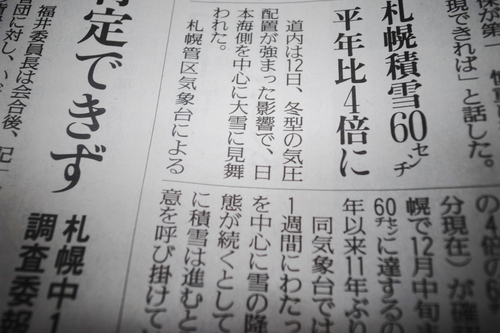 保が第一
現できれば」と話した。
札幌積雪60センチ
平年比4倍に
道内は12日、冬型の気圧
配置が強まった影響で、日
本海側を中心に大雪に見舞
われた。
札幌管区気象台による
の4倍の6
分現在)が確
幌で12月中旬
60センチに達するの
年以来11年ぶり
同気象台では
1週間にわたっ
を中心に雪の降
態が続くとして
に積雪は進むと
意を呼び掛けて
定できず
福井委員長は会合後、記
団に対し、
札幌中1
調査委報